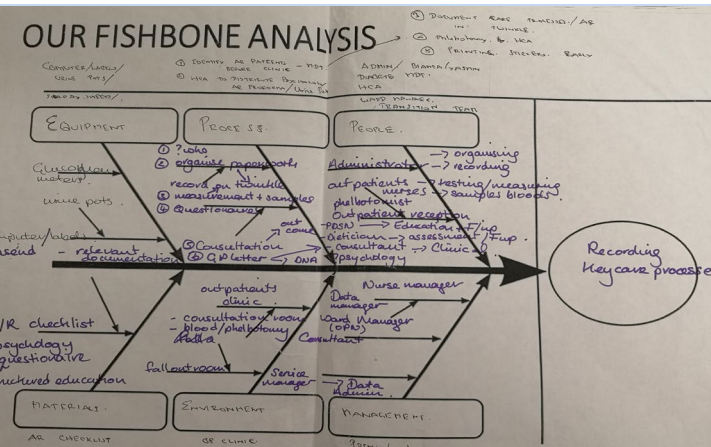 OUR FISHBONE ANALYSIS
① DOCUMENT CARE PROCESSES/AR
IN TWINKLE.
② Phlebotomy by HCA
③ PRINTING STICKERS EARLY
COMPUTER/LABELS/
URINE POTS/
① IDENTIFY AR PATIENTS
BEFORE CLINIC - MDT
② HCA TO DISTRIBUTE
AR PROFORMA/Urine Pot
ADMIN/ BIANCA/YASMIN
DIABETES MDT.
HCA
WARD MANAGER.
TRANSITION TEAM
EQUIPMENT
PROCESS.
PEOPLE.
Glucometer
meters.
urine pots.
computer/labels
send - relevant
documentation
① ? who
② organise paperwork
record on twinkle
③ measurement + samples
④ Questionaires
out
come
⑤ Consultation
⑥ GP letter → DNA
Administrator → organising
→ recording
out patients → testing/measuring
nurses → samples bloods.
phelbotomist
Outpatient reception
-PDSN → Education + F/up
-Dietician → assessment/F/up.
- consultant → Clinic
?psychology
Recording
Key care processe
/R checklist
psychology
questionaire
uctured education
outpatients
clinic.
- consultation room
- blood/phelbotomy
fallout room
Nurse manager
Data
manager
Ward Manager
(OPN)
Consultant
Service
manager → Data
Admin.
MATERIALS.
ENVIRONMENT
MANAGEMENT.
AR CHECKLIST
CLINIC